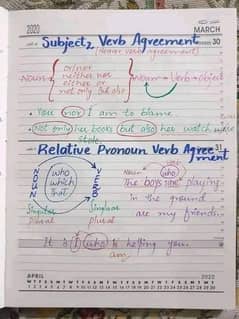 2020
MARCH
30
Subject, Verb Agreement
(Nearer verb agreement)
Noun or/nor
neither nor
either or
not only but also
Noun → Verb → Object
You nor I am to blame.
Not only her books but also her watch was
stole
31
Relative Pronoun Verb Agree
ment
NOUN who VERB
which
that
Noun who
The boys are playing
in the ground
are my friends.
Singular Singular
plural plural
It is I who is helping you.
am
APRIL 2020